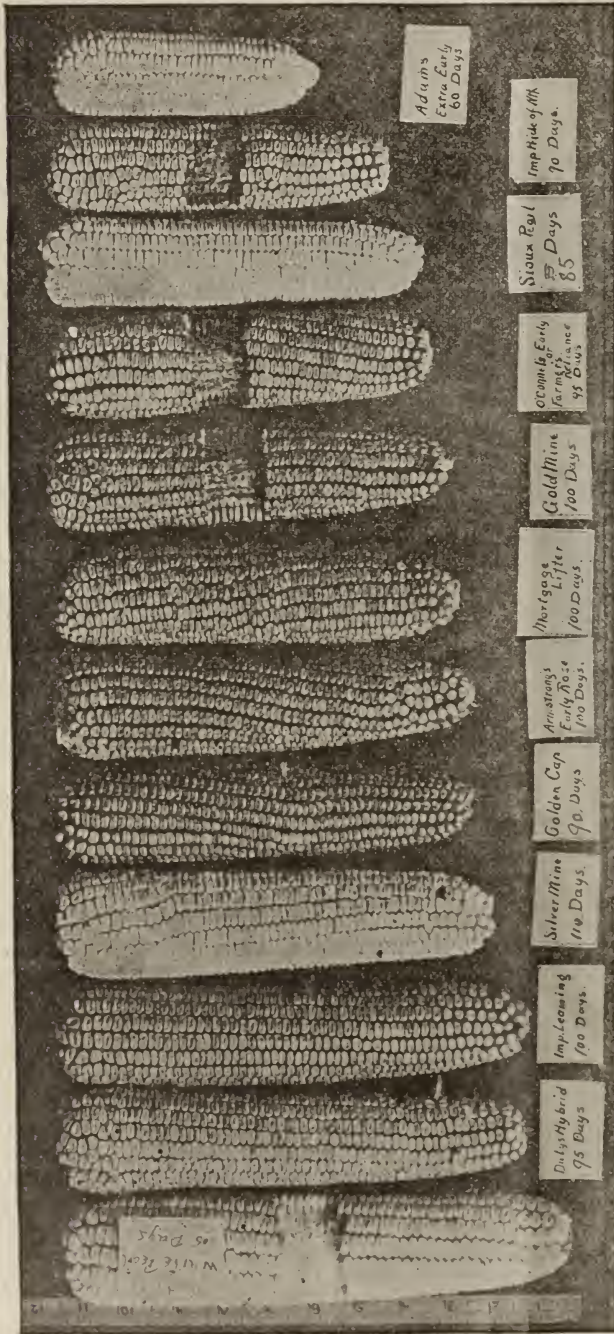 Adams
Extra Early
60 Days
Imp Pride of Nth
90 Days.
Sioux Pearl
Days
85
O'Connels Early
or
Farmers
Reliance
95 Days
Gold Mine
100 Days
Mortgage
Lifter
100 Days.
Armstrongs
Early Rose
100 Days.
Golden Cap
90 Days
Silver Mine
110 Days.
Imp. Leaming
100 Days.
Dalys Hybrid
95 Days
White Pearl
Days